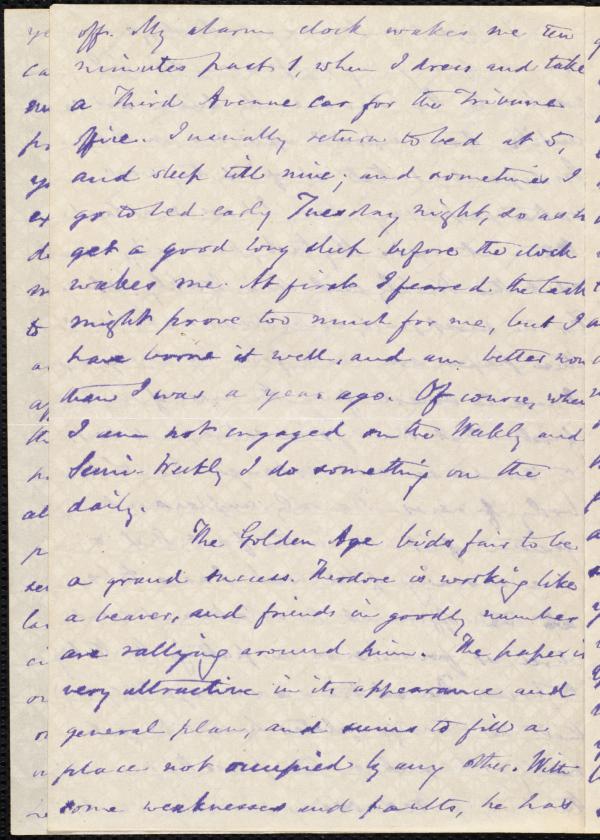 off. My alarm clock wakes me ten
minutes past 1, when I dress and take
a Third Avenue car for the Tribune
office. I usually return to bed at 5,
and sleep till nine; and sometimes I
go to bed early Tuesday night, so as to
get a good long sleep before the clock
wakes me. At first I feared the task
might prove too much for me, but I
have borne it well, and am better now
than I was a year ago. Of course, when
I am not engaged on the Weekly and
Semi-Weekly I do something on the
daily.
The Golden Age bids fair to be
a grand success. Theodore is working like
a beaver, and friends in goodly number
are rallying around him. The paper is
very attractive in its appearance and
general plan, and seems to fill a
place not occupied by any other. With
some weaknesses and faults, he has